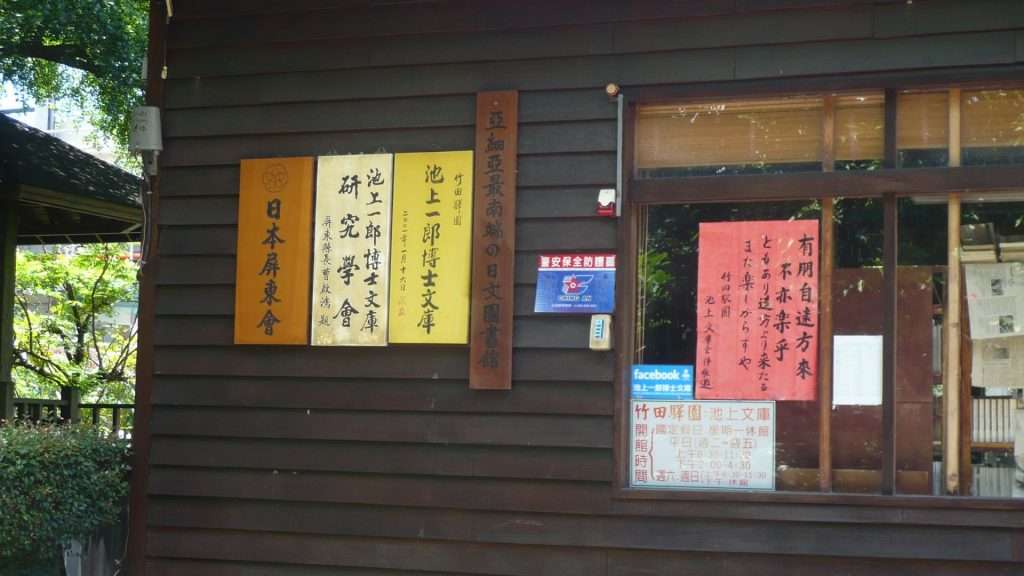 日本屏東會
池上一郎博士文庫
研究學會
竹田驛園
池上一郎博士文庫
二〇〇一年一月十六日
亞細亞最南端の日文圖書館
警安保全防護區
CHING AN
有朋自遠方來
不亦楽乎
ともあり遠方より来たる
また楽しからずや
竹田駅園
facebook
池上一郎博士文庫
竹田驛園·池上文庫
開館時間
國定假日 星期一休館
平日(週二~週五)
上午8:30-11:30
下午2:00-4:30
週六·週日